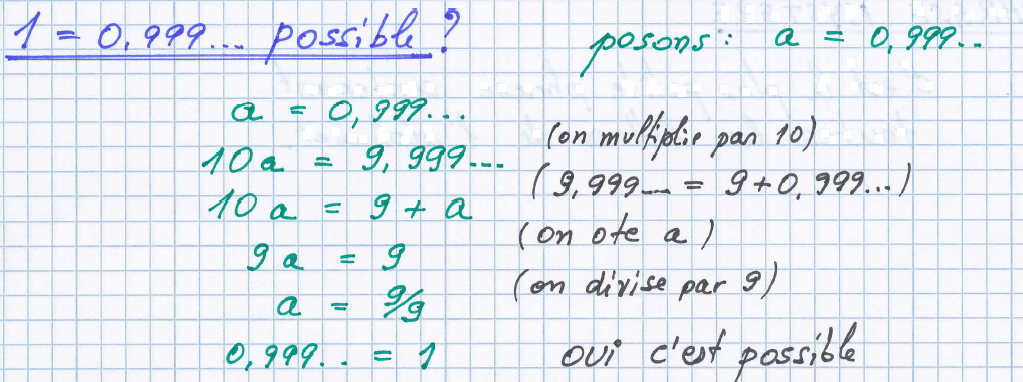 1 = 0,999... possible ?
posons : a = 0,999..
a = 0,999...
(on multiplie par 10)
10a = 9,999...
(9,999... = 9+0,999...)
10a = 9 + a
(on ote a)
9a = 9
(on divise par 9)
a = 9/9
0,999.. = 1
oui c'est possible